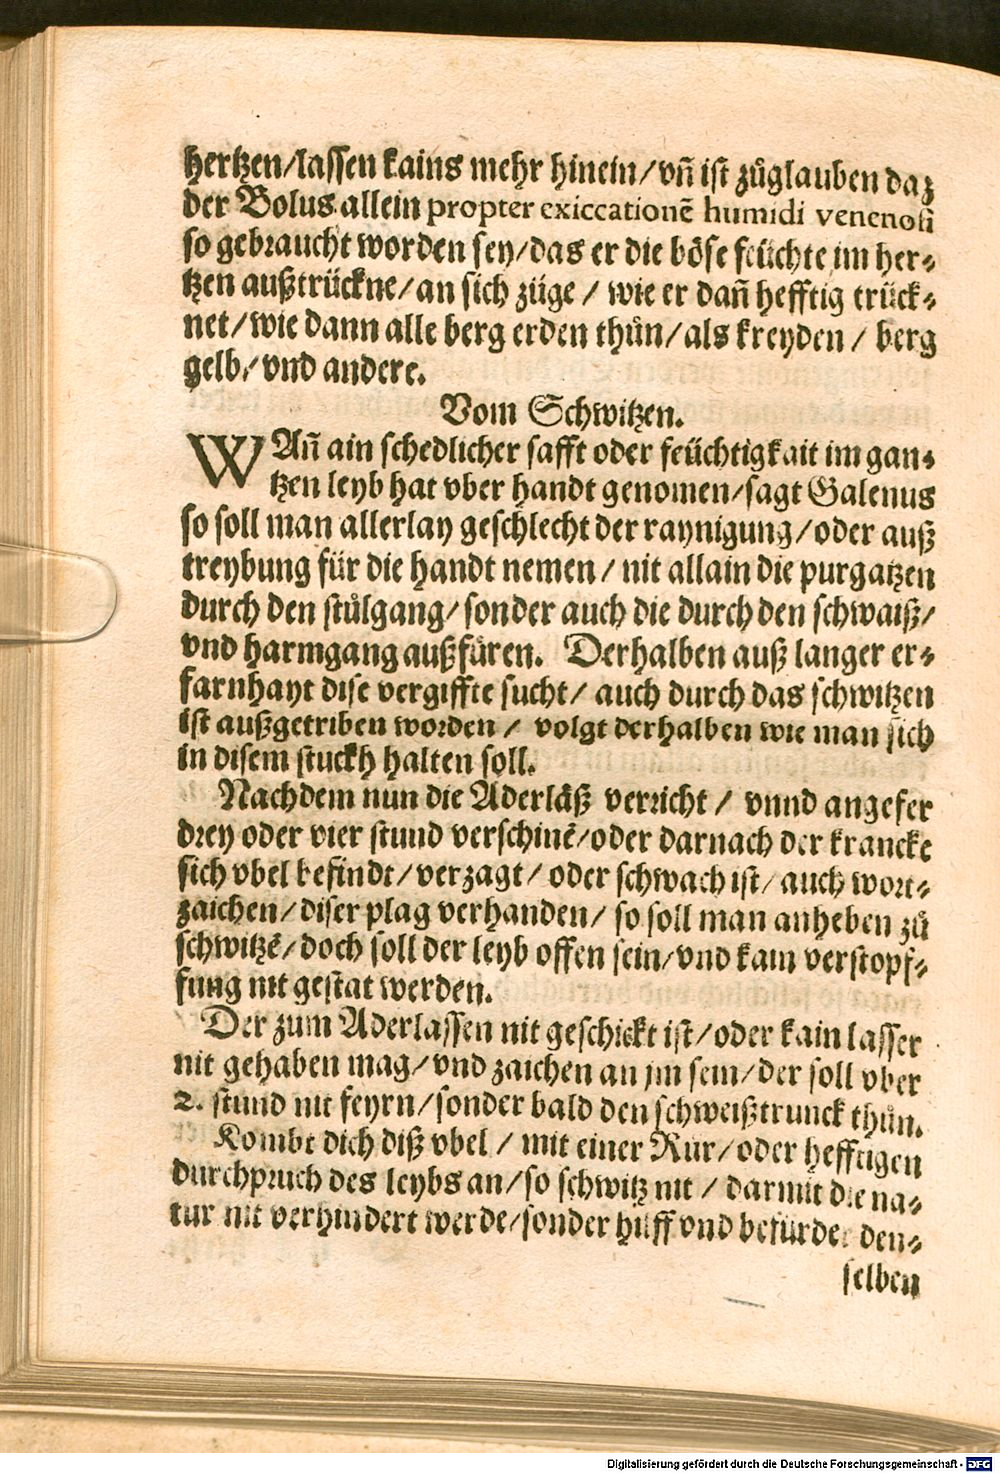 hertzen/lassen kains mehr hinein/vñ ist zůglauben daz
der Bolus allein propter exiccationẽ humidi venenosi
so gebraucht worden sey/das er die böse feüchte im her⸗
tzen außtrückne/an sich züge / wie er dañ hefftig trück⸗
net/wie dann alle berg erden thůn/als kreyden / berg
gelb/vnd andere.
Vom Schwitzen.
WAñ ain schedlicher safft oder feüchtigkait im gan⸗
tzen leyb hat vber handt genomen/sagt Galenus
so soll man allerlay geschlecht der raynigung/oder auß
treybung für die handt nemen / nit allain die purgatzen
durch den stůlgang/sonder auch die durch den schwaiß/
vnd harmgang außfüren. Derhalben auß langer er⸗
farnhayt dise vergiffte sucht/ auch durch das schwitzen
ist außgetriben worden / volgt derhalben wie man sich
in disem stuckh halten soll.
Nachdem nun die Aderläß verricht / vnnd angefer
drey oder vier stund verschinẽ/oder darnach der krancke
sich vbel befindt/verzagt/ oder schwach ist/ auch wort⸗
zaichen/diser plag verhanden/ so soll man anheben zů
schwitzẽ/doch soll der leyb offen sein/vnd kain verstopf⸗
fung nit gestat werden.
Der zum Aderlassen nit geschickt ist/oder kain lasser
nit gehaben mag/vnd zaichen an jm sein/der soll vber
2. stund nit feyrn/sonder bald den schweißtrunck thůn.
Kombt dich diß vbel / mit einer Rur/oder hefftigen
durchpruch des leybs an/so schwitz nit / darmit die na⸗
tur nit verhindert werde/sonder hilff vnd befürder den⸗
selben
Digitalisierung gefördert durch die Deutsche Forschungsgemeinschaft - DFG